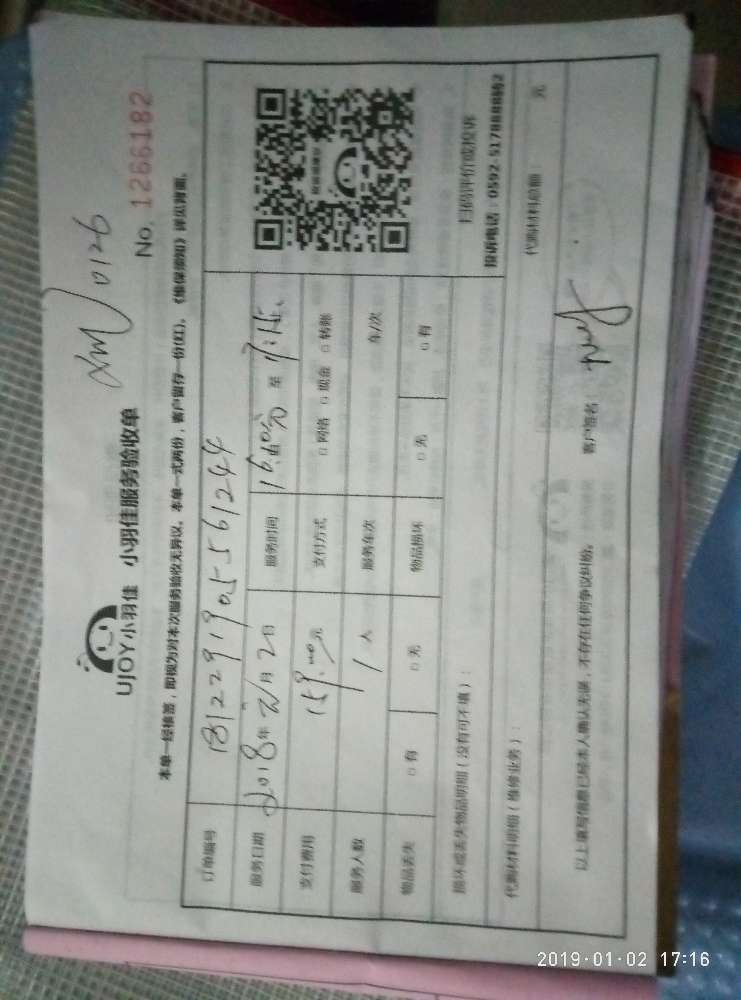 UJOY小羽佳 小羽佳服务验收单
0126
No. 1266182
本单一经核签，即视为对本次服务验收无异议。本单一式两份，客户留存一份(红)。《维保须知》详见背面。
订单编号 181229190555561244
服务日期 2018年 月2日 服务时间 至 17:15
支付费用 159.00元 支付方式 □网络 □现金 □转账
服务人数 1人 服务车次 车/次
物品丢失 □有 □无 物品损坏 □无 □有
扫码评价或投诉
投诉电话：0592-5178888转2
损坏或丢失物品明细（没有可不填）：
代购材料明细（维修业务）： 代购材料总额： 元
以上填写信息已经本人确认无误，不存在任何争议纠纷。 客户签名：
2019-01-02 17:16